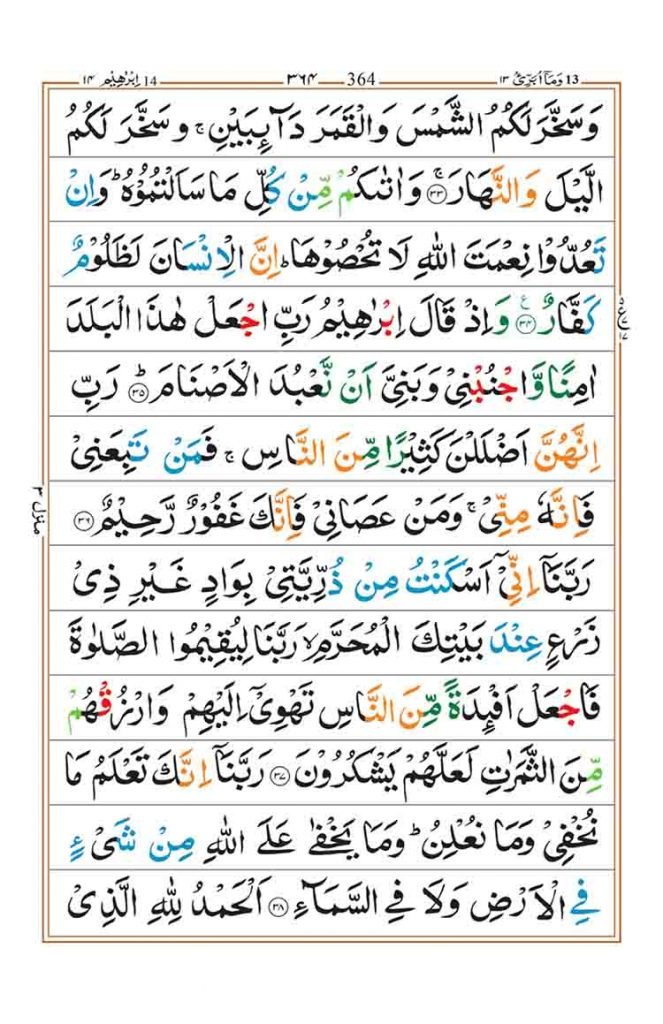 14 اِبْرٰهِيْم ١٤ ٣٦٤ 364 13 وَمَآ اُبَرِّئُ ١٣
وَسَخَّرَ لَكُمُ الشَّمْسَ وَالْقَمَرَ دَآئِبَيْنِ ۚ وَسَخَّرَ لَكُمُ
الَّيْلَ وَالنَّهَارَ ۚ ﴿٣٣﴾ وَاٰتٰىكُمْ مِّنْ كُلِّ مَا سَاَلْتُمُوْهُ ؕ وَاِنْ
تَعُدُّوْا نِعْمَتَ اللّٰهِ لَا تُحْصُوْهَا ؕ اِنَّ الْاِنْسَانَ لَظَلُوْمٌ
كَفَّارٌ ﴿٣٤﴾ ع وَاِذْ قَالَ اِبْرٰهِيْمُ رَبِّ اجْعَلْ هٰذَا الْبَلَدَ
اٰمِنًا وَّاجْنُبْنِيْ وَبَنِيَّ اَنْ نَّعْبُدَ الْاَصْنَامَ ؕ ﴿٣٥﴾ رَبِّ
اِنَّهُنَّ اَضْلَلْنَ كَثِيْرًا مِّنَ النَّاسِ ۚ فَمَنْ تَبِعَنِيْ
فَاِنَّهٗ مِنِّيْ ۚ وَمَنْ عَصَانِيْ فَاِنَّكَ غَفُوْرٌ رَّحِيْمٌ ﴿٣٦﴾
منزل ٣
رَبَّنَآ اِنِّيْٓ اَسْكَنْتُ مِنْ ذُرِّيَّتِيْ بِوَادٍ غَيْرِ ذِيْ
زَرْعٍ عِنْدَ بَيْتِكَ الْمُحَرَّمِ ۙ رَبَّنَا لِيُقِيْمُوا الصَّلٰوةَ
فَاجْعَلْ اَفْئِدَةً مِّنَ النَّاسِ تَهْوِيْٓ اِلَيْهِمْ وَارْزُقْهُمْ
مِّنَ الثَّمَرٰتِ لَعَلَّهُمْ يَشْكُرُوْنَ ﴿٣٧﴾ رَبَّنَآ اِنَّكَ تَعْلَمُ مَا
نُخْفِيْ وَمَا نُعْلِنُ ؕ وَمَا يَخْفٰى عَلَى اللّٰهِ مِنْ شَيْءٍ
فِي الْاَرْضِ وَلَا فِي السَّمَآءِ ﴿٣٨﴾ اَلْحَمْدُ لِلّٰهِ الَّذِيْ